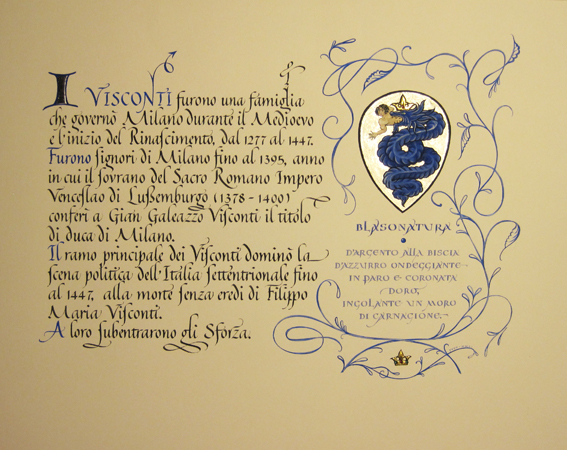 I VISCONTI furono una famiglia
che governò Milano durante il Medioevo
e l'inizio del Rinaſcimento, dal 1277 al 1447.
Furono ſignori di Milano fino al 1395, anno
in cui il ſovrano del Sacro Romano Impero
Venceſlao di Luſſemburgo (1378-1400)
conferì a Gian Galeazzo Viſconti il titolo
di duca di Milano.
Il ramo principale dei Viſconti dominò la
ſcena politica dell'Italia ſettentrionale fino
al 1447, alla morte ſenza eredi di Filippo
Maria Viſconti.
A loro ſubentrarono gli Sforza.
BLASONATURA
D'ARGENTO ALLA BISCIA
D'AZZURRO ONDEGGIANTE
IN PARO E CORONATA
D'ORO,
INGOLANTE UN MORO
DI CARNAGIONE.